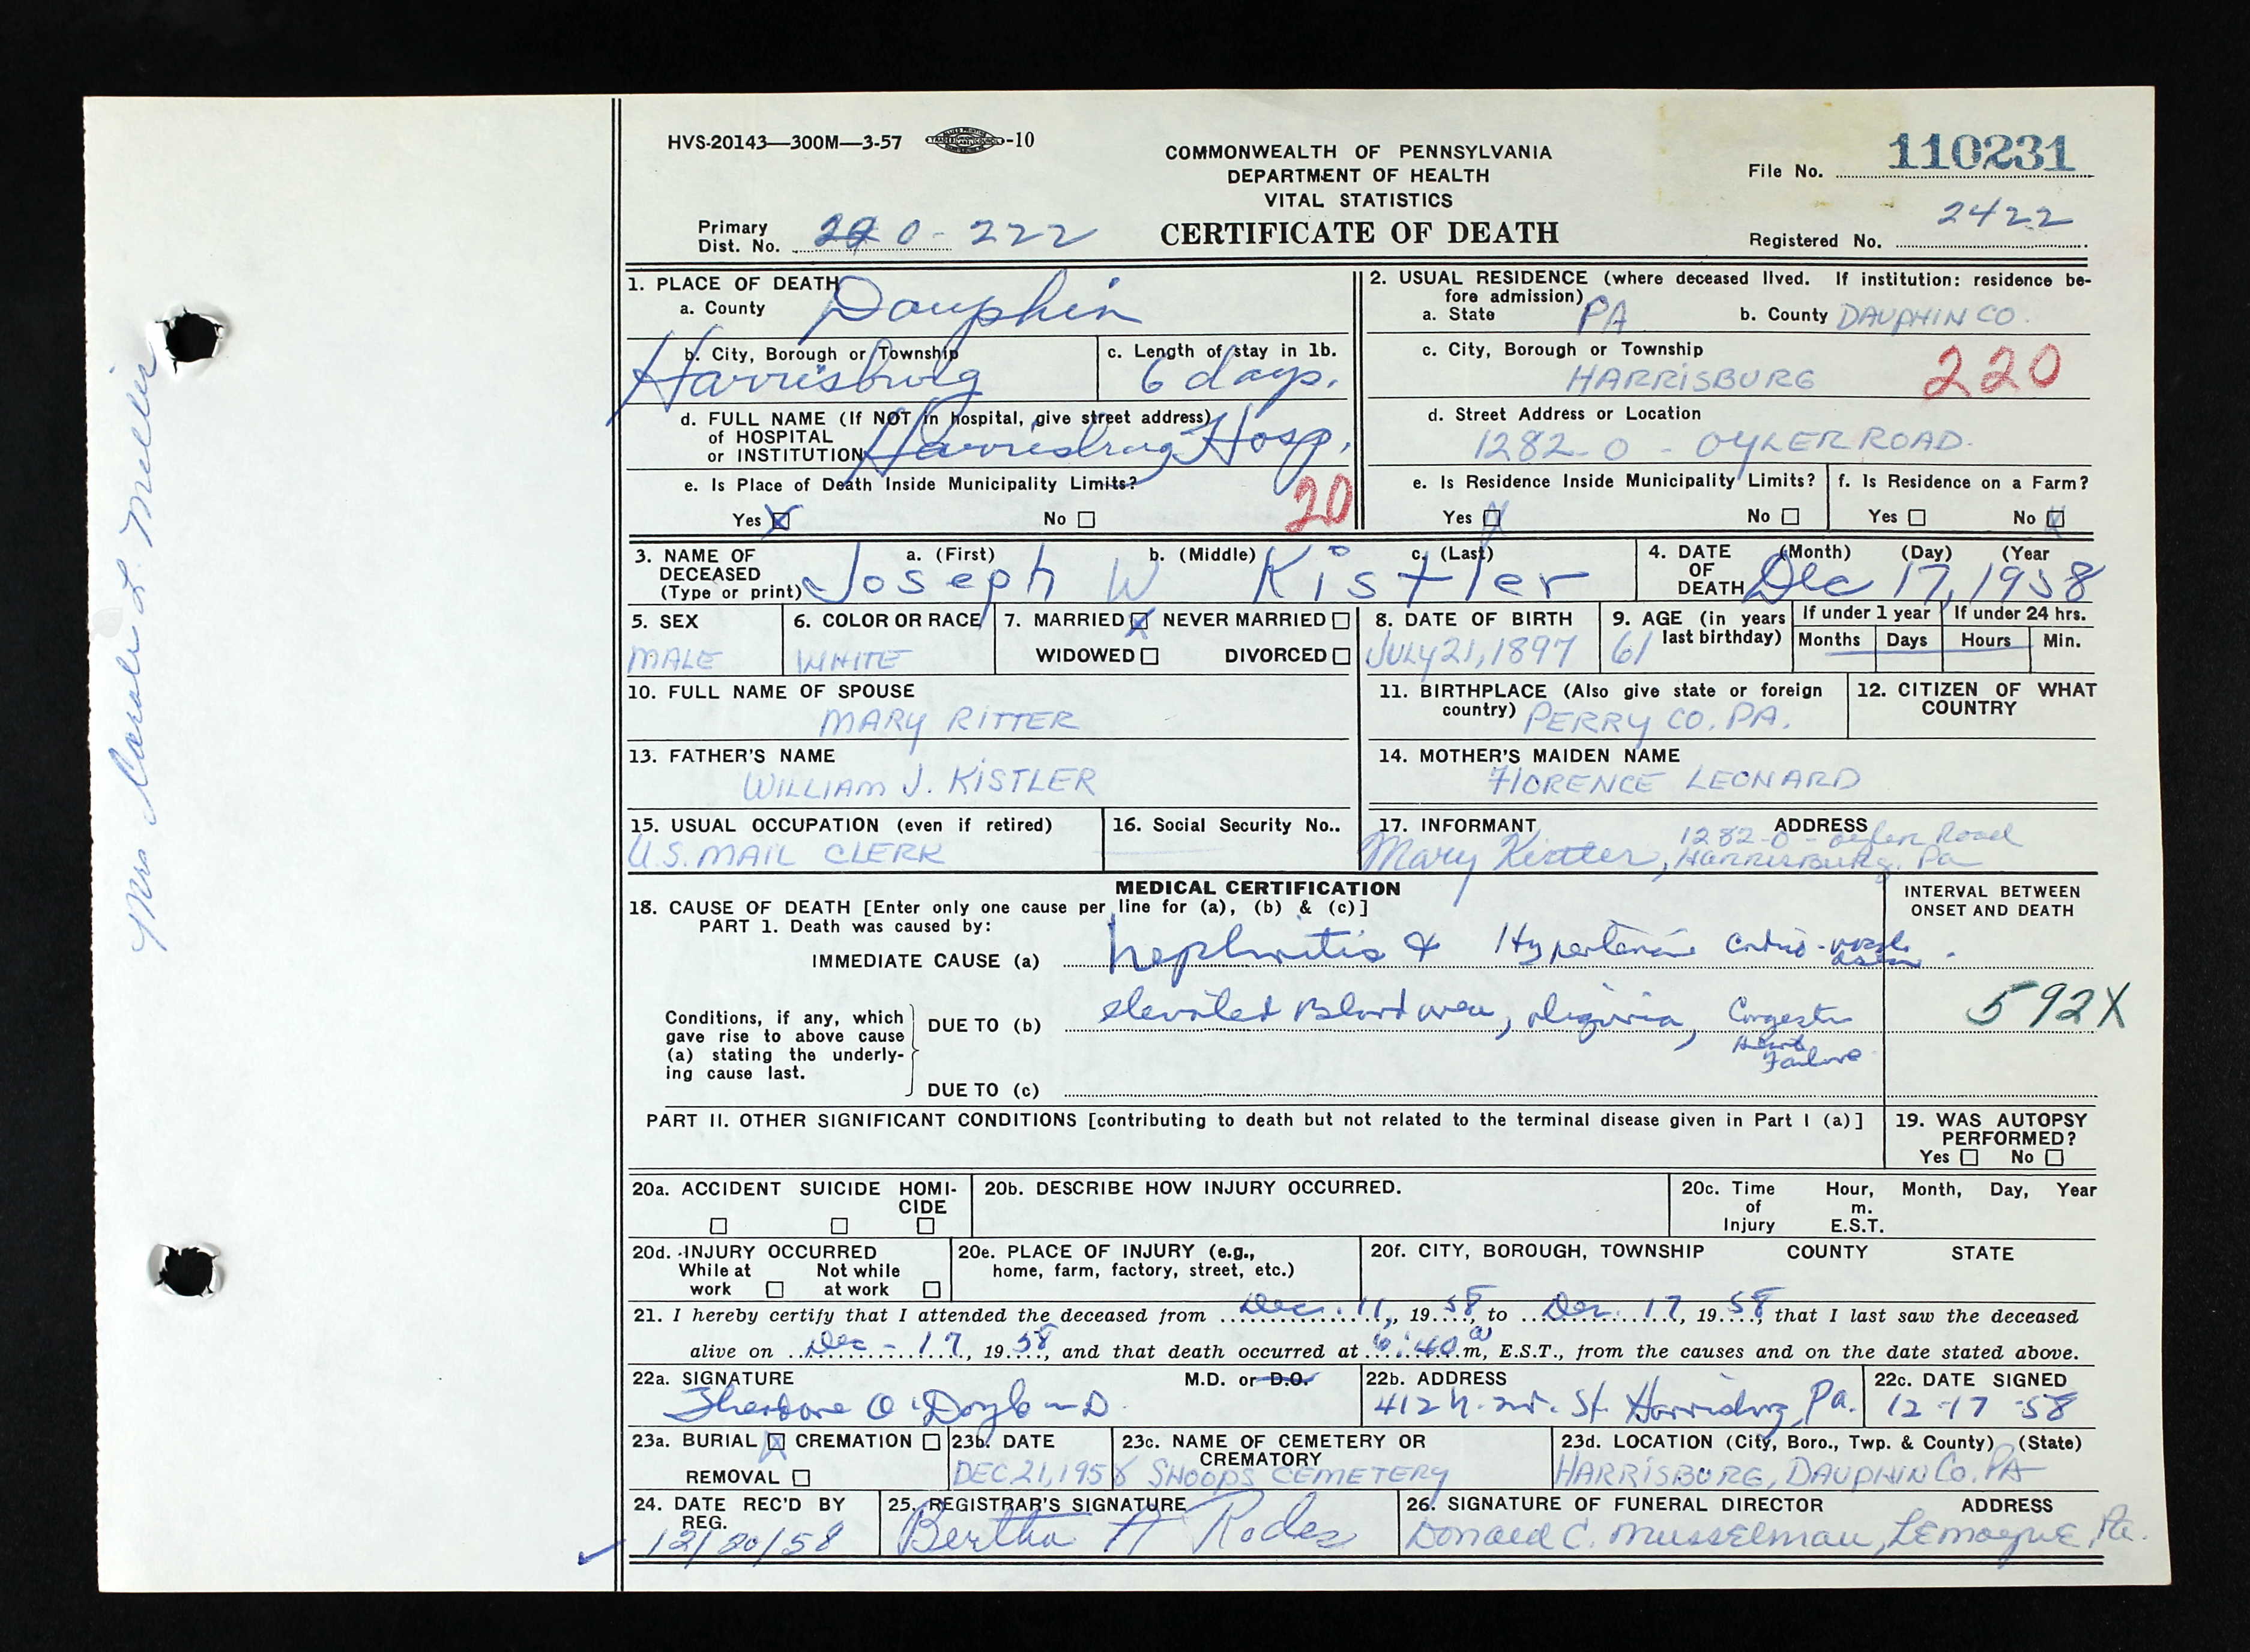 HVS-20143—300M—3-57 -10
COMMONWEALTH OF PENNSYLVANIA
DEPARTMENT OF HEALTH
VITAL STATISTICS
CERTIFICATE OF DEATH
File No. 110231
Primary Dist. No. 0-222
Registered No. 2422
1. PLACE OF DEATH
a. County Dauphin
b. City, Borough or Township
Harrisburg
c. Length of stay in 1b.
6 days.
d. FULL NAME (If NOT in hospital, give street address)
of HOSPITAL
or INSTITUTION Harrisburg Hosp.
e. Is Place of Death Inside Municipality Limits?
Yes X No 20
2. USUAL RESIDENCE (where deceased lived. If institution: residence be-
fore admission)
a. State PA b. County DAUPHIN CO.
c. City, Borough or Township
HARRISBURG 220
d. Street Address or Location
1282-O - OYLER ROAD.
e. Is Residence Inside Municipality Limits? f. Is Residence on a Farm?
Yes X No Yes No X
3. NAME OF DECEASED (Type or print)
a. (First) b. (Middle) c. (Last)
Joseph W Kistler
4. DATE OF DEATH (Month) (Day) (Year
Dec 17, 1958
5. SEX
MALE
6. COLOR OR RACE
WHITE
7. MARRIED X NEVER MARRIED
WIDOWED DIVORCED
8. DATE OF BIRTH
JULY 21, 1897
9. AGE (in years last birthday)
61
If under 1 year If under 24 hrs.
Months Days Hours Min.
10. FULL NAME OF SPOUSE
MARY RITTER
11. BIRTHPLACE (Also give state or foreign
country) PERRY CO. PA.
12. CITIZEN OF WHAT
COUNTRY
13. FATHER'S NAME
WILLIAM J. KISTLER
14. MOTHER'S MAIDEN NAME
FLORENCE LEONARD
15. USUAL OCCUPATION (even if retired)
U.S. MAIL CLERK
16. Social Security No..
17. INFORMANT ADDRESS
Mary Kistler, 1282-O - Oyler Road
Harrisburg, Pa
MEDICAL CERTIFICATION
18. CAUSE OF DEATH [Enter only one cause per line for (a), (b) & (c)]
INTERVAL BETWEEN
ONSET AND DEATH
PART 1. Death was caused by:
IMMEDIATE CAUSE (a) Nephritis & Hypertensive Cardio-
Conditions, if any, which
gave rise to above cause
(a) stating the underly-
ing cause last.
DUE TO (b) elevated Blood urea, oliguria, Congestive
Heart
Failure
592X
DUE TO (c)
PART II. OTHER SIGNIFICANT CONDITIONS [contributing to death but not related to the terminal disease given in Part I (a)]
19. WAS AUTOPSY
PERFORMED?
Yes No
20a. ACCIDENT SUICIDE HOMI-
CIDE
20b. DESCRIBE HOW INJURY OCCURRED.
20c. Time of Injury Hour, Month, Day, Year
m.
E.S.T.
20d. INJURY OCCURRED
While at work Not while at work
20e. PLACE OF INJURY (e.g.,
home, farm, factory, street, etc.)
20f. CITY, BOROUGH, TOWNSHIP COUNTY STATE
21. I hereby certify that I attended the deceased from Dec. 11, 1958, to Dec. 17, 1958, that I last saw the deceased
alive on Dec - 17, 1958, and that death occurred at 6:40 a m, E.S.T., from the causes and on the date stated above.
22a. SIGNATURE M.D. or D.O.
22b. ADDRESS
412 N. 2nd. St. Harrisburg, Pa.
22c. DATE SIGNED
12-17-58
23a. BURIAL X CREMATION
REMOVAL
23b. DATE
DEC. 21, 1958
23c. NAME OF CEMETERY OR
CREMATORY
SHOOPS CEMETERY
23d. LOCATION (City, Boro., Twp. & County) (State)
HARRISBURG, DAUPHIN CO. PA
24. DATE REC'D BY
REG.
12/20/58
25. REGISTRAR'S SIGNATURE
Bertha A Rodes
26. SIGNATURE OF FUNERAL DIRECTOR ADDRESS
Donald C. Musselman, Lemoyne, Pa.
Mrs L. Miller